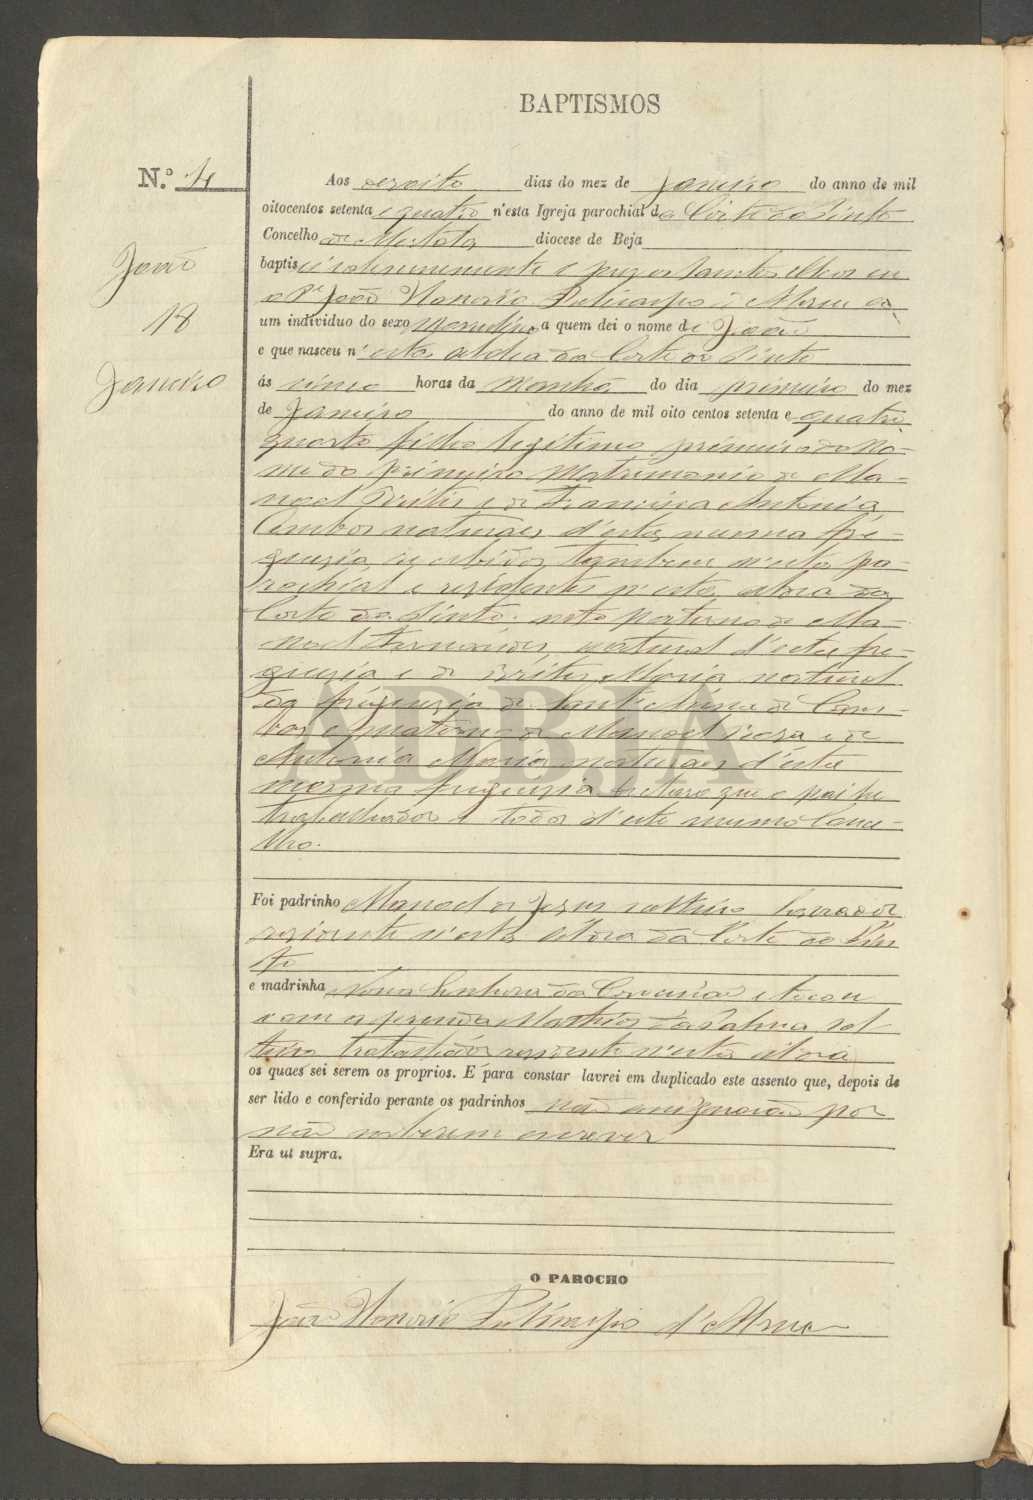 BAPTISMOS
N.º 4
João
18
Janeiro
Aos dezoito dias do mez de Janeiro do anno de mil
oitocentos setenta e quatro n'esta Igreja parochial da Corte do Pinto
Concelho de Mertola diocese de Beja
baptisei solemnemente e puz os Santos Oleos eu
o Pe João Honorio
um individuo do sexo masculino a quem dei o nome de João
e que nasceu n'esta aldeia da Corte do Pinto
ás cinco horas da manhã do dia primeiro do mez
de Janeiro do anno de mil oito centos setenta e quatro
quarto filho legitimo, primeiro do no-
me do primeiro matrimonio de Ma-
noel e de Francisca Antonia
ambos naturaes d'esta mesma fre-
guezia, recebidos tambem n'esta pa-
rochial e residentes n'esta aldeia da
Corte do Pinto: neto paterno de Ma-
noel Fernandes, natural d'esta fre-
guezia e de Brites Maria natural
da freguezia de Sant'Anna de Cam-
bas e materno de Manoel e de
Antonia Maria naturaes d'esta
mesma freguezia que o pai he
trabalhador e todos d'este mesmo Conce-
lho.
Foi padrinho Manoel de Jesus solteiro
residente n'esta aldeia da Corte do Pin
to
e madrinha Nossa Senhora da Conceição e tocou
com a prenda Mathias da Palma sol
teiro trabalhador residente n'esta aldeia
os quaes sei serem os proprios. E para constar lavrei em duplicado este assento que, depois de
ser lido e conferido perante os padrinhos não assignarão por
não saberem escrever
Era ut supra.
O PAROCHO
João Honorio
ADBJA